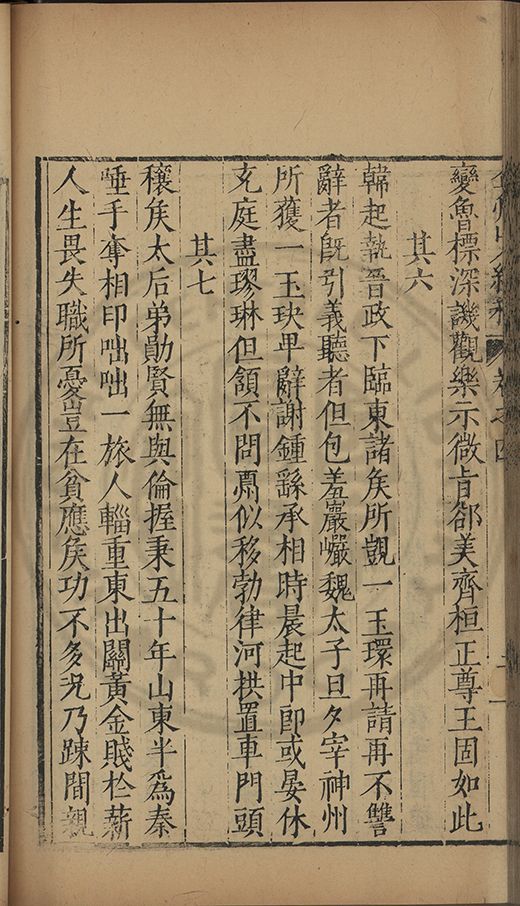 卷之四
變魯標深譏觀樂示微㫖郤美齊桓正尊王固如此
其六
韓起執晉政下臨東諸矦所覬一玉環再請再不讐
辭者旣引義聽者但包羞巖巖魏太子旦夕宰神州
所獲一玉玦甲辭謝鍾繇承相時晨起中郎或晏休
充庭盡璆琳但頷不問似移勃律河拱置車門頭
其七
穰矦太后弟勛賢無與倫握秉五十年山東半爲秦
唾手奪相印咄咄一旅人輜重東出關黃金賤於薪
人生畏失職所憂豈在貧應矦功不多况乃踈間親